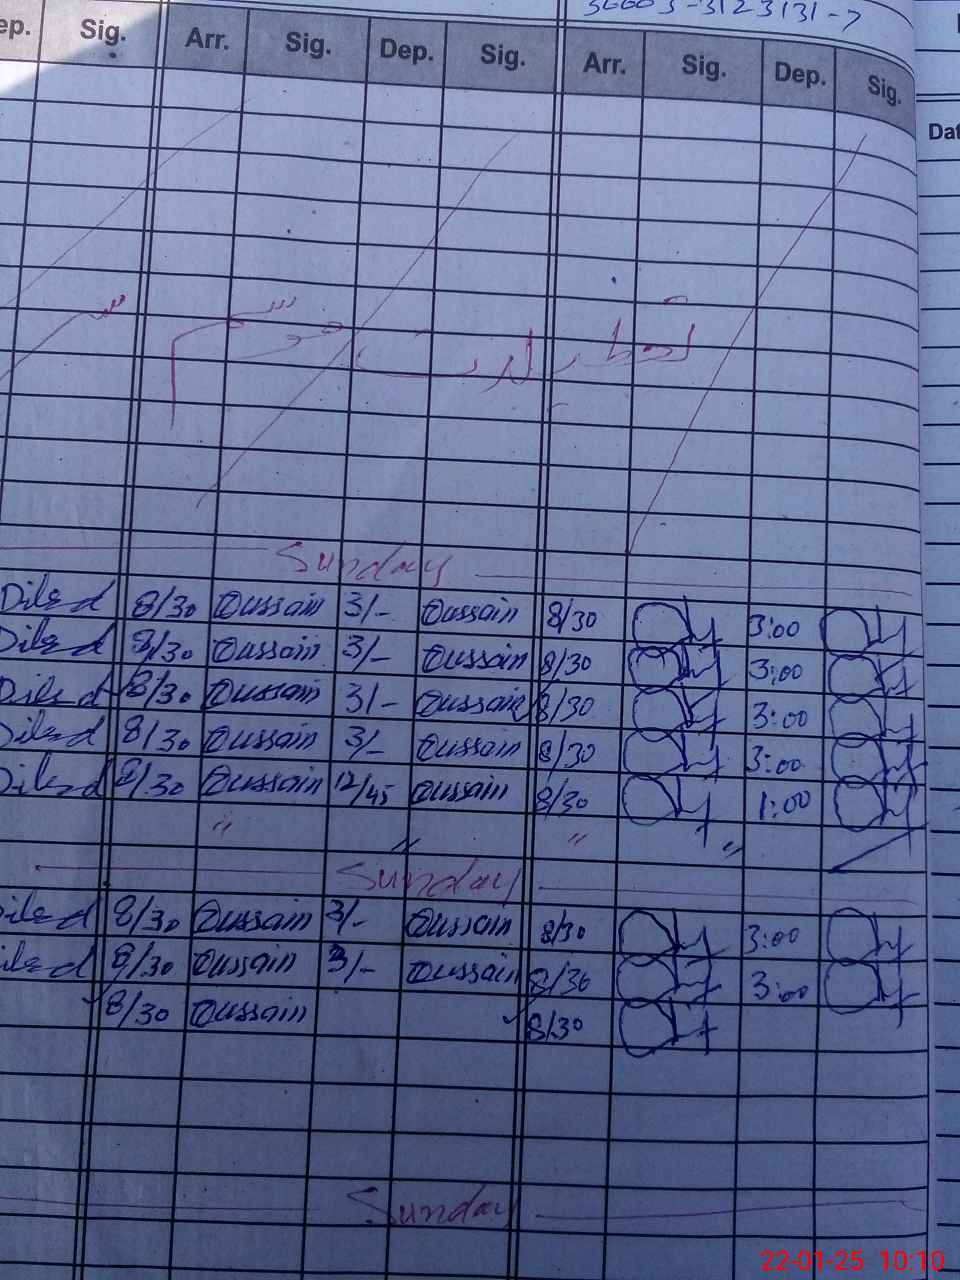 36603-3123131-7
ep. Sig. Arr. Sig. Dep. Sig. Arr. Sig. Dep. Sig.
Dat
Sunday
Diled 8/30 Oussain 3/- Oussain 8/30 3:00
Diled 8/30 Oussain 3/- Oussain 8/30 3:00
Diled 8/30 Oussain 3/- Oussain 8/30 3:00
Diled 8/30 Oussain 3/- Oussain 8/30 3:00
Diled 8/30 Oussain 12/45 Oussain 8/30 1:00
" " " "
Sunday
iled 8/30 Oussain 3/- Oussain 8/30 3:00
iled 8/30 Oussain 3/- Oussain 8/30 3:00
8/30 Oussain 8/30
Sunday
22-01-25 10:10